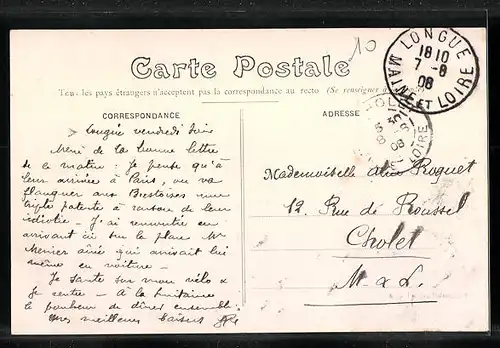 10
Carte Postale
Tous les pays étrangers n'acceptent pas la correspondance au recto (Se renseigner à
CORRESPONDANCE
ADRESSE
LONGUE
18 10
7-8
08
MAINE ET LOIRE
CHOLET
08
LOIRE
Longué vendredi soir
Merci de la bonne lettre
de ce matin. Je pense qu'à
leur arrivée à Paris, on va
flanquer aux Brestoises une
patente à raison de leur
idiotie. J'ai rencontré en
arrivant ici sur la place Mr
Mercier aîné qui arrivait lui
même en voiture —
Je saute sur mon vélo &
Je rentre — À la
le bonheur de dîner ensemble.
Mes meilleurs baisers
Mademoiselle Roguet
12, Rue de Roussel
Cholet
M. & L.